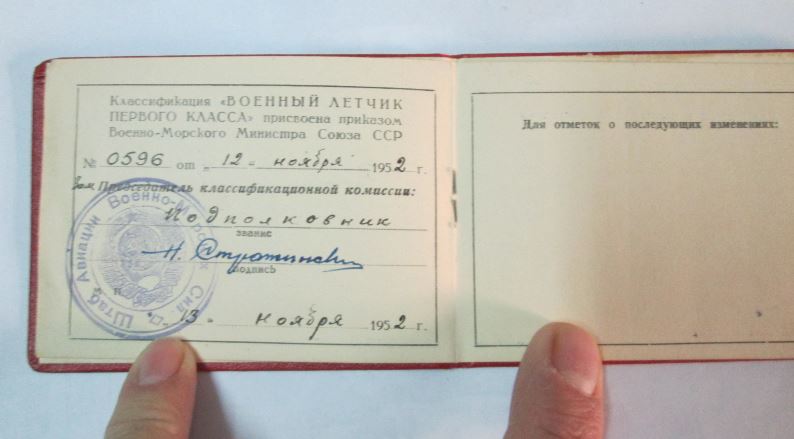 Классификация «ВОЕННЫЙ ЛЕТЧИК
ПЕРВОГО КЛАССА» присвоена приказом
Военно-Морского Министра Союза ССР
№ 0596 от „12" ноября 1952 г.
Зам Председатель классификационной комиссии:
Подполковник
звание
подпись
„13" ноября 1952 г.
Штаб Авиации Военно-Морских Сил
Для отметок о последующих изменениях: